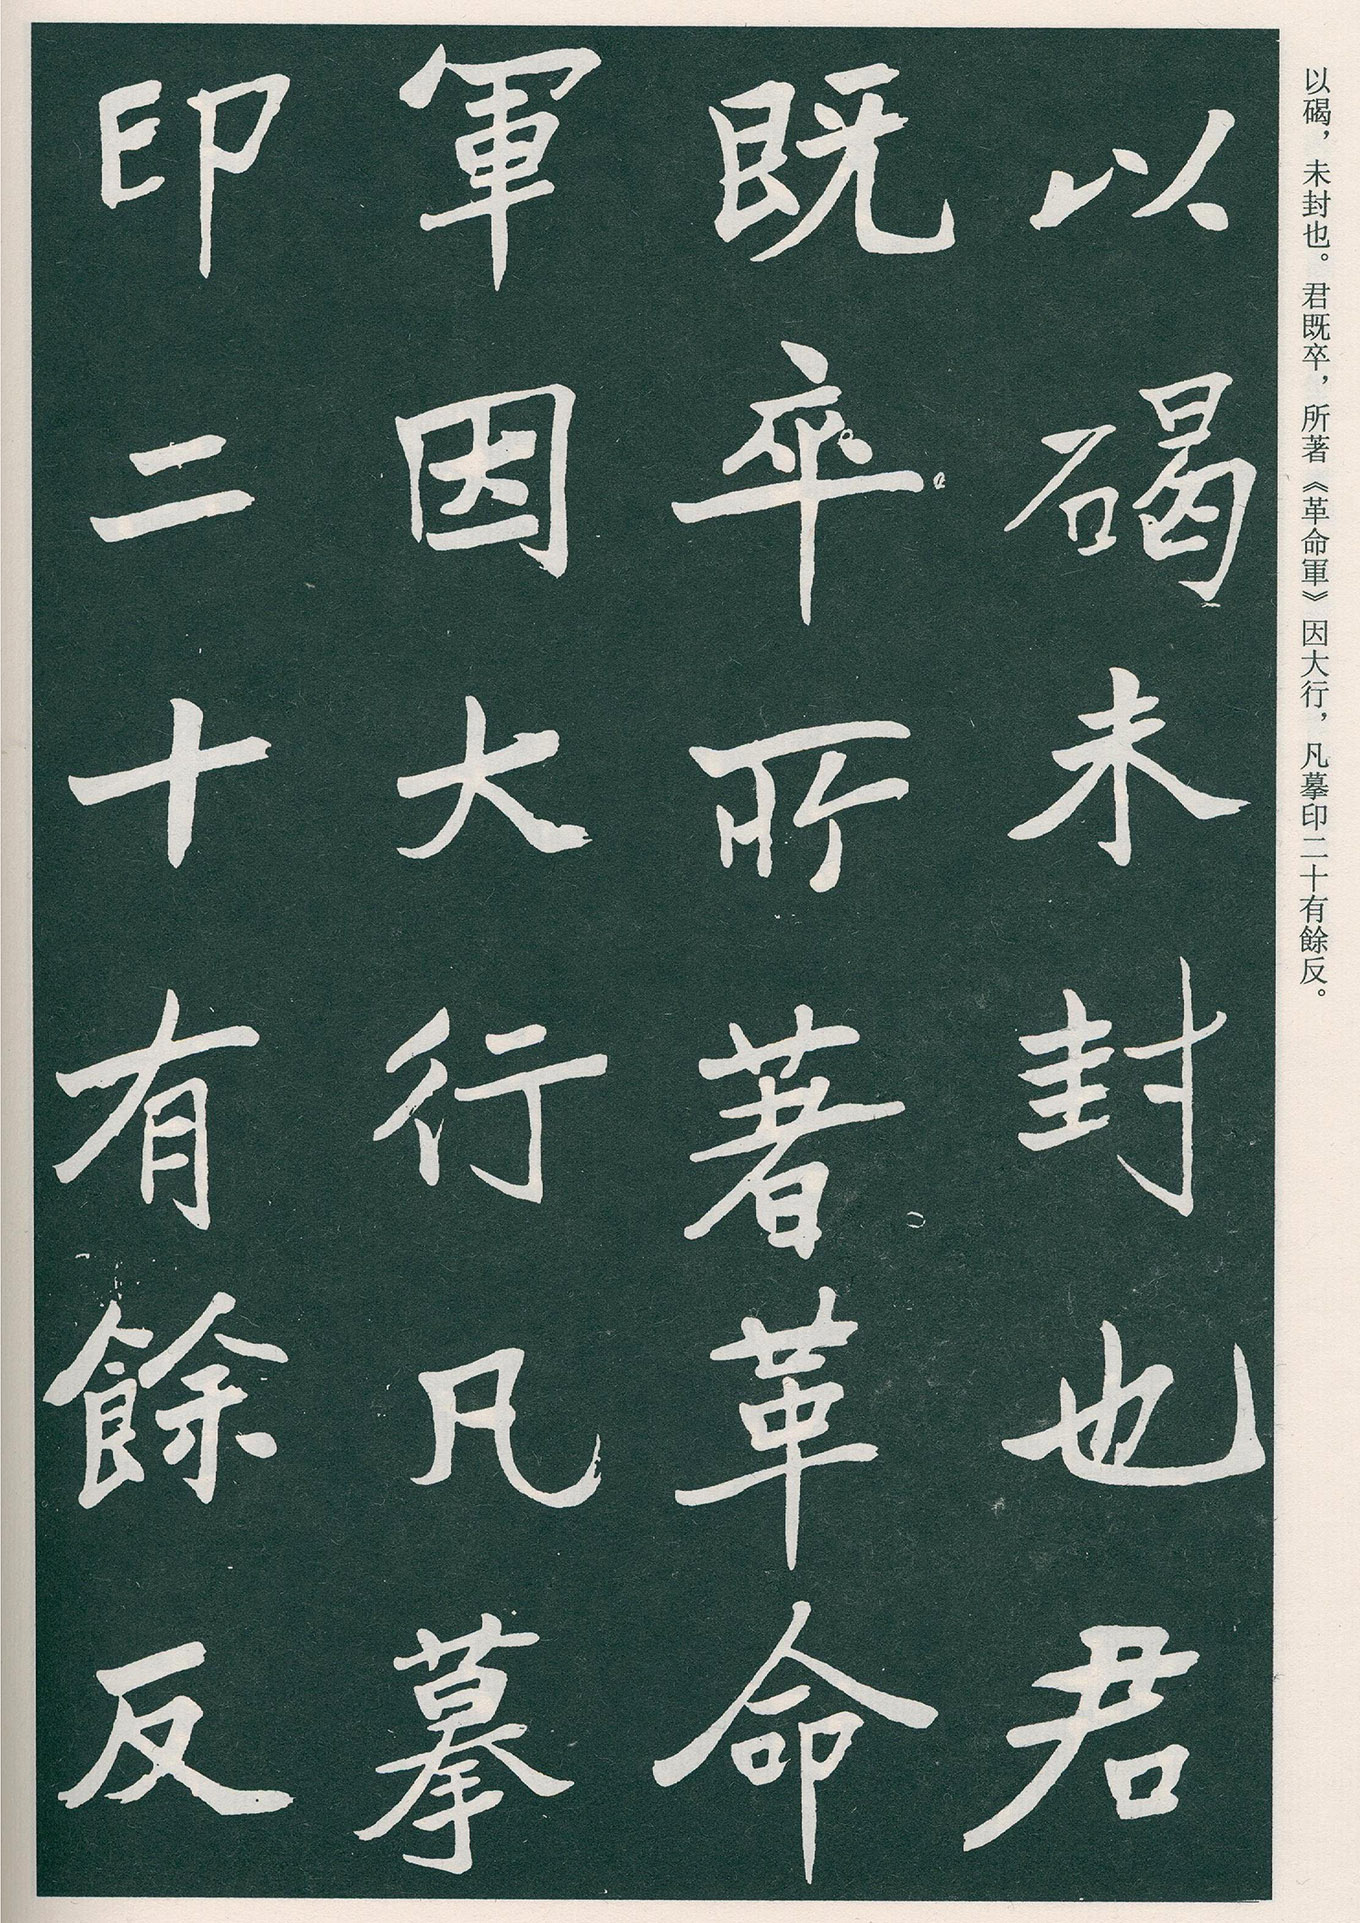 以碣，未封也。君既卒，所著《革命軍》因大行，凡摹印二十有餘反。
以碣未封也君
既卒所著革命
軍因大行凡摹
印二十有餘反